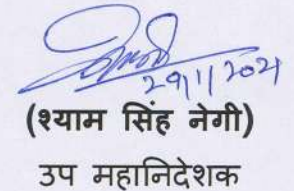 29/1/2021
(श्याम सिंह नेगी)
उप महानिदेशक